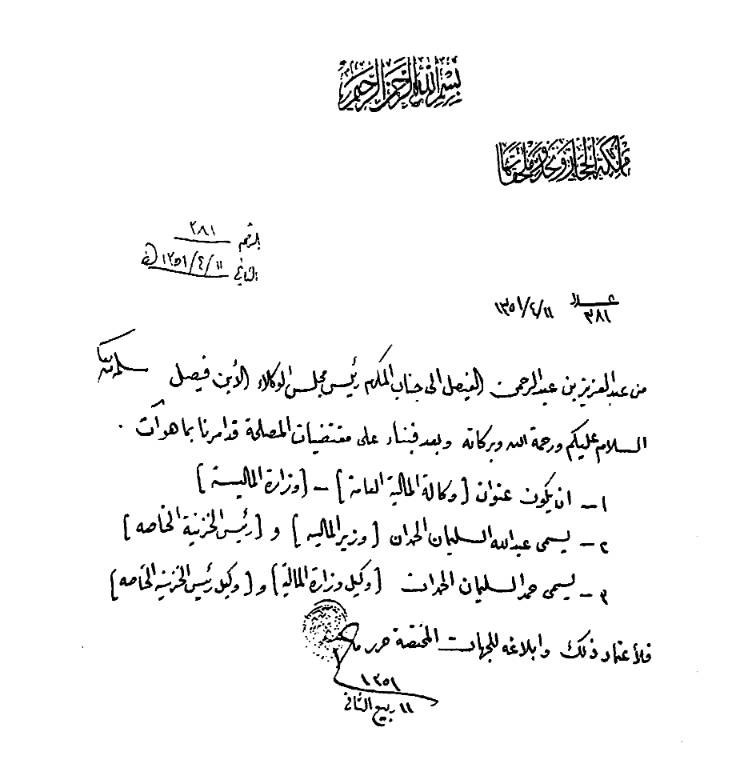 بسم الله الرحمن الرحيم
مملكة الحجاز ونجد وملحقاتها
الرقم ٣٨١
التاريخ ١٣٥١/٤/١١
عدد ٣٨١ ١٣٥١/٤/١١
من عبد العزيز بن عبد الرحمن الفيصل الى جناب المكرم رئيس مجلس الوكلاء الأبن فيصل سلمه الله
السلام عليكم ورحمة الله وبركاته وبعد فبناء على مقتضيات المصلحة قد امرنا بما هوآت .
١ - ان يكون عنوان [وكالة المالية العامة] - [وزارة المالية]
٢ - يسمى عبدالله السليمان الحمدان [وزير المالية] و [رئيس الخزنية الخاصه]
٣ - يسمى حمد السليمان الحمدان [وكيل وزارة المالية] و [وكيل رئيس الخزنية الخاصه]
فلأعتماد ذلك وابلاغه للجهات المختصة حرر
١٣٥١
١١ ربيع الثاني